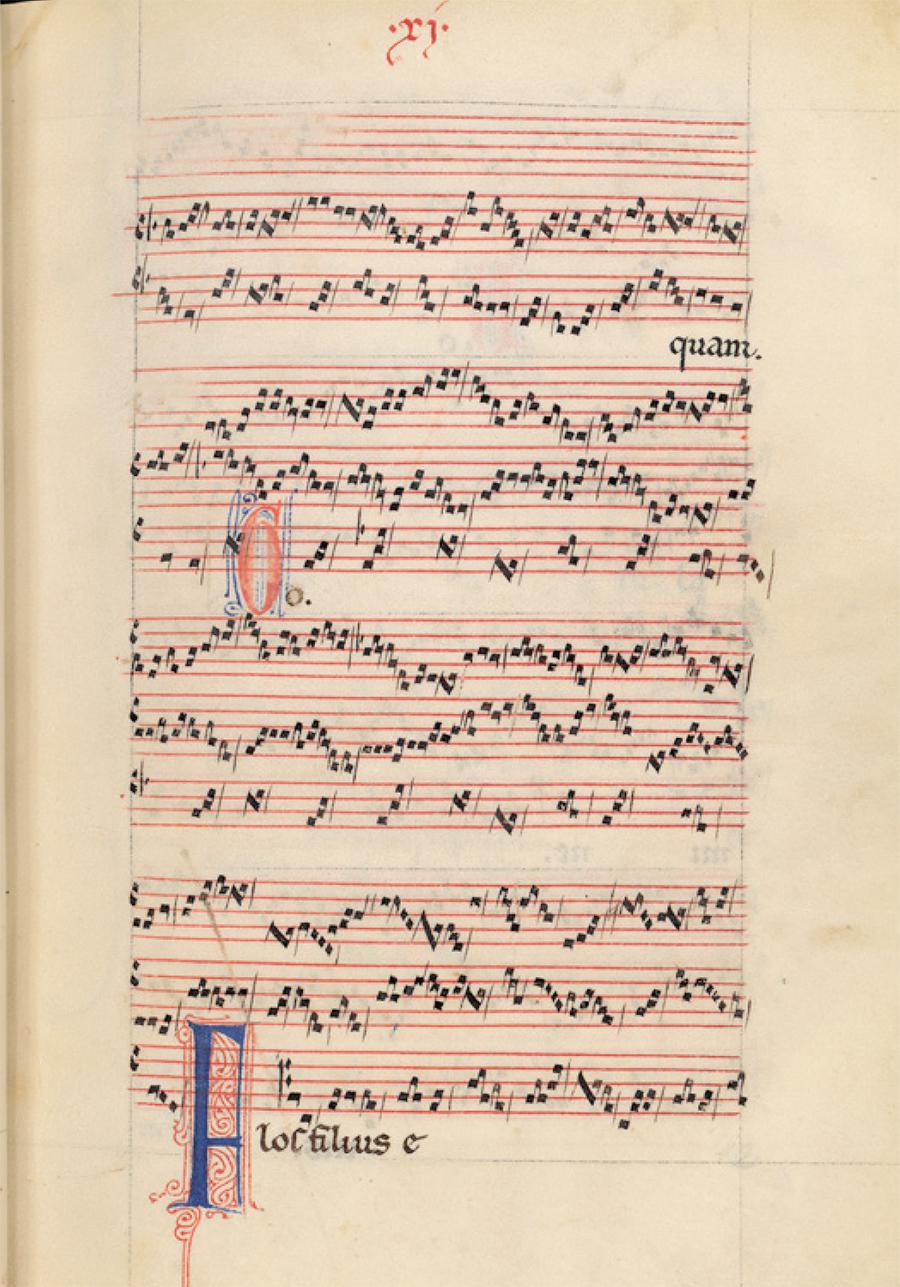 ·xj·
quam.
Q o.
Flos filius e